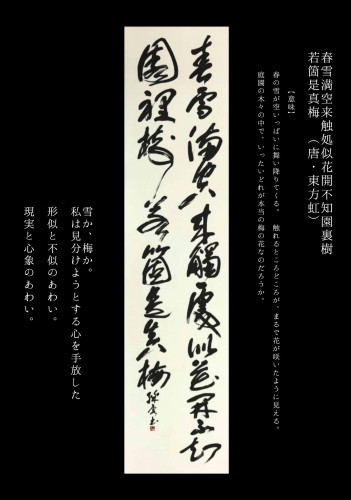 春雪満空来触処似花開不知園裏樹
若箇是真梅　（唐・東方虬）
【意味】
春の雪が空いっぱいに舞い降りてくる。　触れるところどころが、まるで花が咲いたように見える。
庭園の木々の中で、いったいどれが本当の梅の花なのだろうか。
春雪満空来觸處似花開不知
園裡樹若箇是真梅
雪か、梅か。
私は見分けようとする心を手放した
形似と不似のあわい。
現実と心象のあわい。